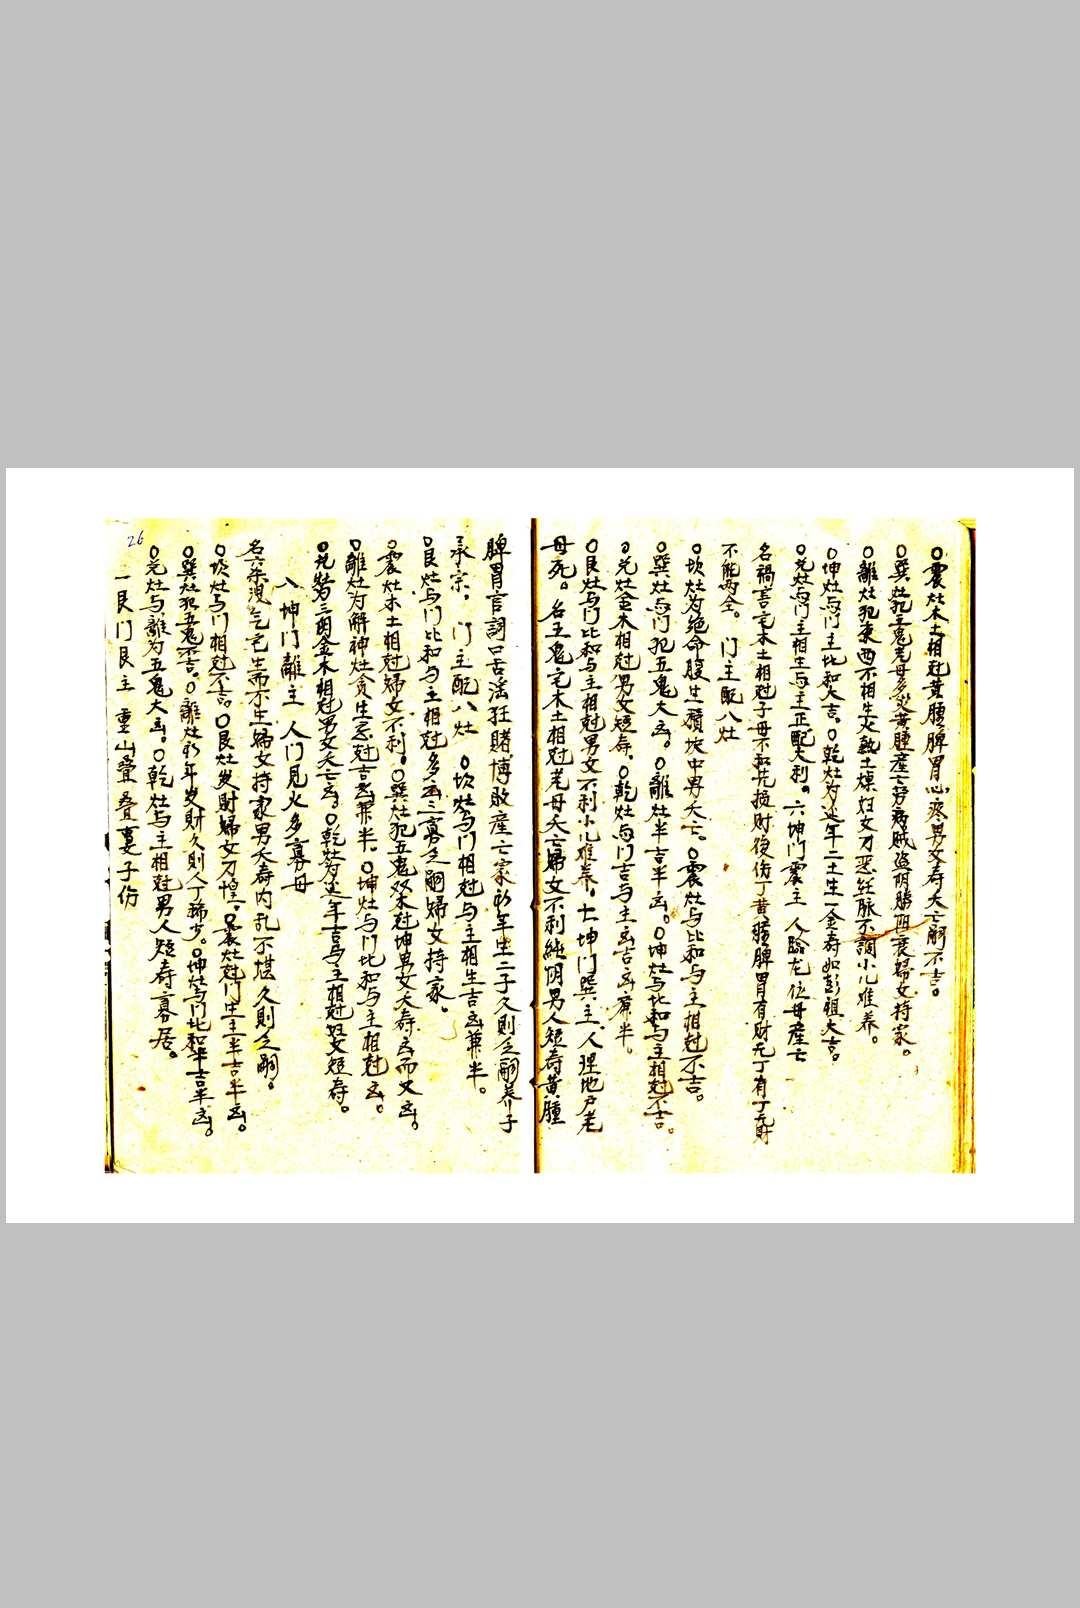 ○震灶木土相尅黄腫脾胃心疼男女寿夭亡嗣不吉。
○巽灶犯五鬼尅母多災黄腫産亡労病賊盗阴勝阳衰婦女持家。
○離灶犯 不相生火熱土燥妇女刀恶経脉不調小儿难养。
○坤灶与门主比和大吉。○乾灶为延年二土生一金寿如彭祖大吉。
○兑灶与门主相生与主正配大利。六坤门震主 人臨龙位母産亡
名禍害宅木土相尅子母不和先损财後伤丁黄腫脾胃有财无丁有丁无財
不能两全。 门主配八灶
○坎灶为绝命腹生積块中男夭亡。○震灶与比和与主相尅不吉。
○巽灶与门犯五鬼大凶。○離灶半吉半凶。○坤灶与比和与主相尅不吉。
○兑灶金木相尅男女短寿。○乾灶与门吉与主凶吉凶兼半。
○艮灶与门比和与主相尅男女不利小儿难养。七坤门巽主 人埋地户老
母死。名五鬼宅木土相尅老母夭亡婦女不利純阴男人短寿黄腫
脾胃言詞口舌淫狂賭博敗産亡家初年生二子久則乏嗣养子
承宗。 门主配八灶 ○坎灶与门相尅与主相生吉凶兼半。
○艮灶与门比和与主相尅多凶三寡乏嗣婦女持家。
○震灶木土相尅婦女不利。○巽灶犯五鬼双木尅坤男女夭寿凶而又凶。
○離灶为解神灶贪生忘尅吉凶兼半。○坤灶与门比和与主相尅凶。
○兑灶 金木相尅男女夭亡凶。○乾灶为延年吉与主相尅妇女短寿。
八 坤门離主 人门见火多寡母
名六杀洩气宅生而不生婦女持家男夭寿内乱不堪久則乏嗣。
○坎灶与门相尅不吉。○艮灶发財婦女刀惶。○震灶尅门生主半吉半凶。
○巽灶犯五鬼不吉。○離灶初年发財久則人丁稀少。○坤灶与门比和半吉半凶。
○兑灶与離为五鬼大凶。○乾灶与主相尅男人短寿寡居。
一艮门艮主 重山叠叠妻子伤
26